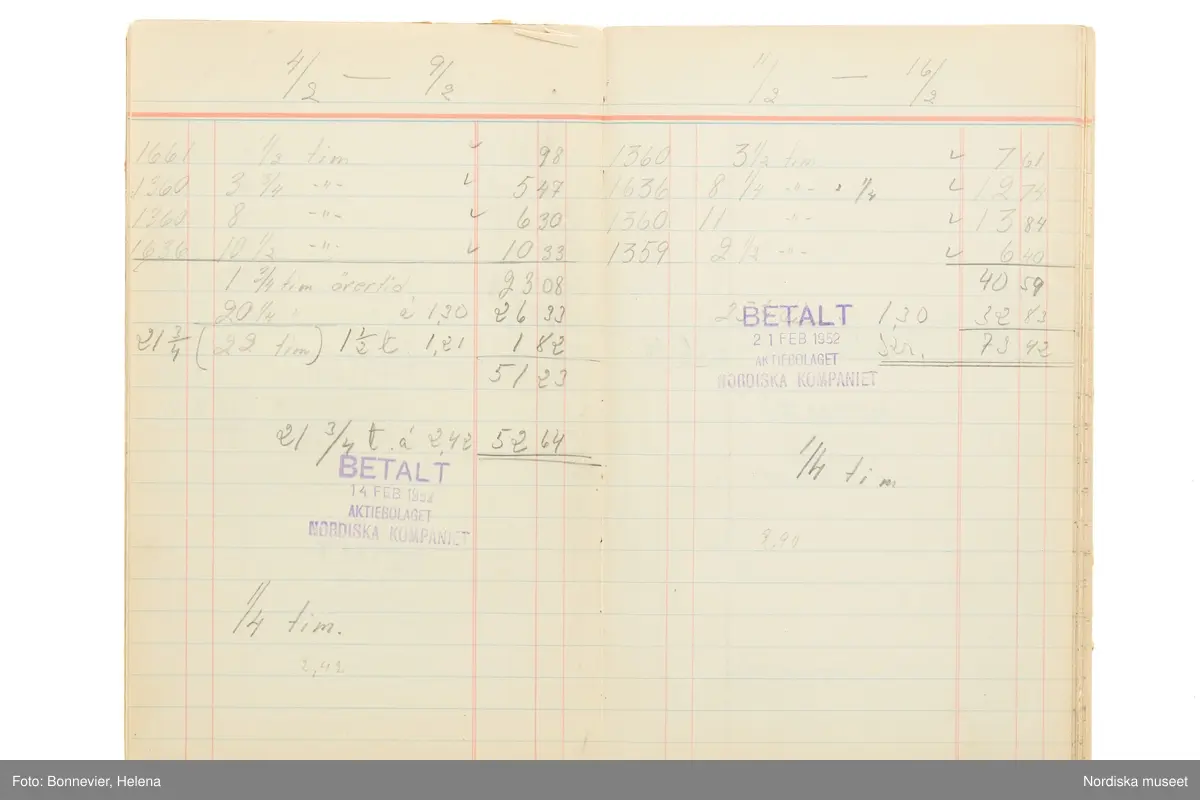 4/2 — 9/2
1661 1/2 tim ✓ 98
1360 3 3/4 -"- ✓ 5 47
1360 8 -"- ✓ 6 30
1636 10 1/2 -"- ✓ 10 33
1 3/4 tim övertid 23 08
20 1/4 " á 1,30 26 33
21 3/4 (22 tim) 1 1/2 t. 1,21 1 82
51 23
21 3/4 t. á 2,42 52 64
BETALT
14 FEB 1952
AKTIEBOLAGET
NORDISKA KOMPANIET
1/4 tim.
2,42
11/2 — 16/2
1360 3 1/2 tim ✓ 7 61
1636 8 1/4 -"- ✓ 12 74
1360 11 -"- ✓ 13 84
1359 2 1/2 -"- ✓ 6 40
40 59
1,30 32 83
Kr. 73 42
BETALT
21 FEB 1952
AKTIEBOLAGET
NORDISKA KOMPANIET
1/4 tim
2,90
Foto: Bonnevier, Helena
Nordiska museet